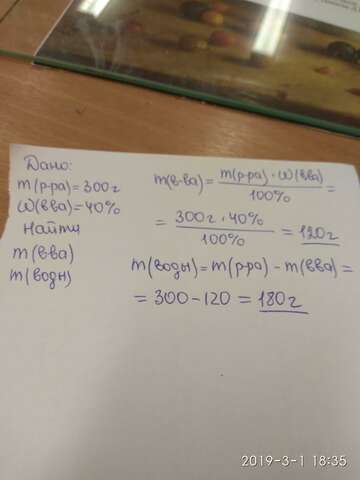 Дано:
m(р-ра) = 300г
ω(вва) = 40%
Найти
m(вва)
m(воды)
m(в-ва) = m(р-ра) · ω(вва) / 100% =
= 300г · 40% / 100% = 120г
m(воды) = m(р-ра) - m(вва) =
= 300 - 120 = 180г
2019-3-1 18:35